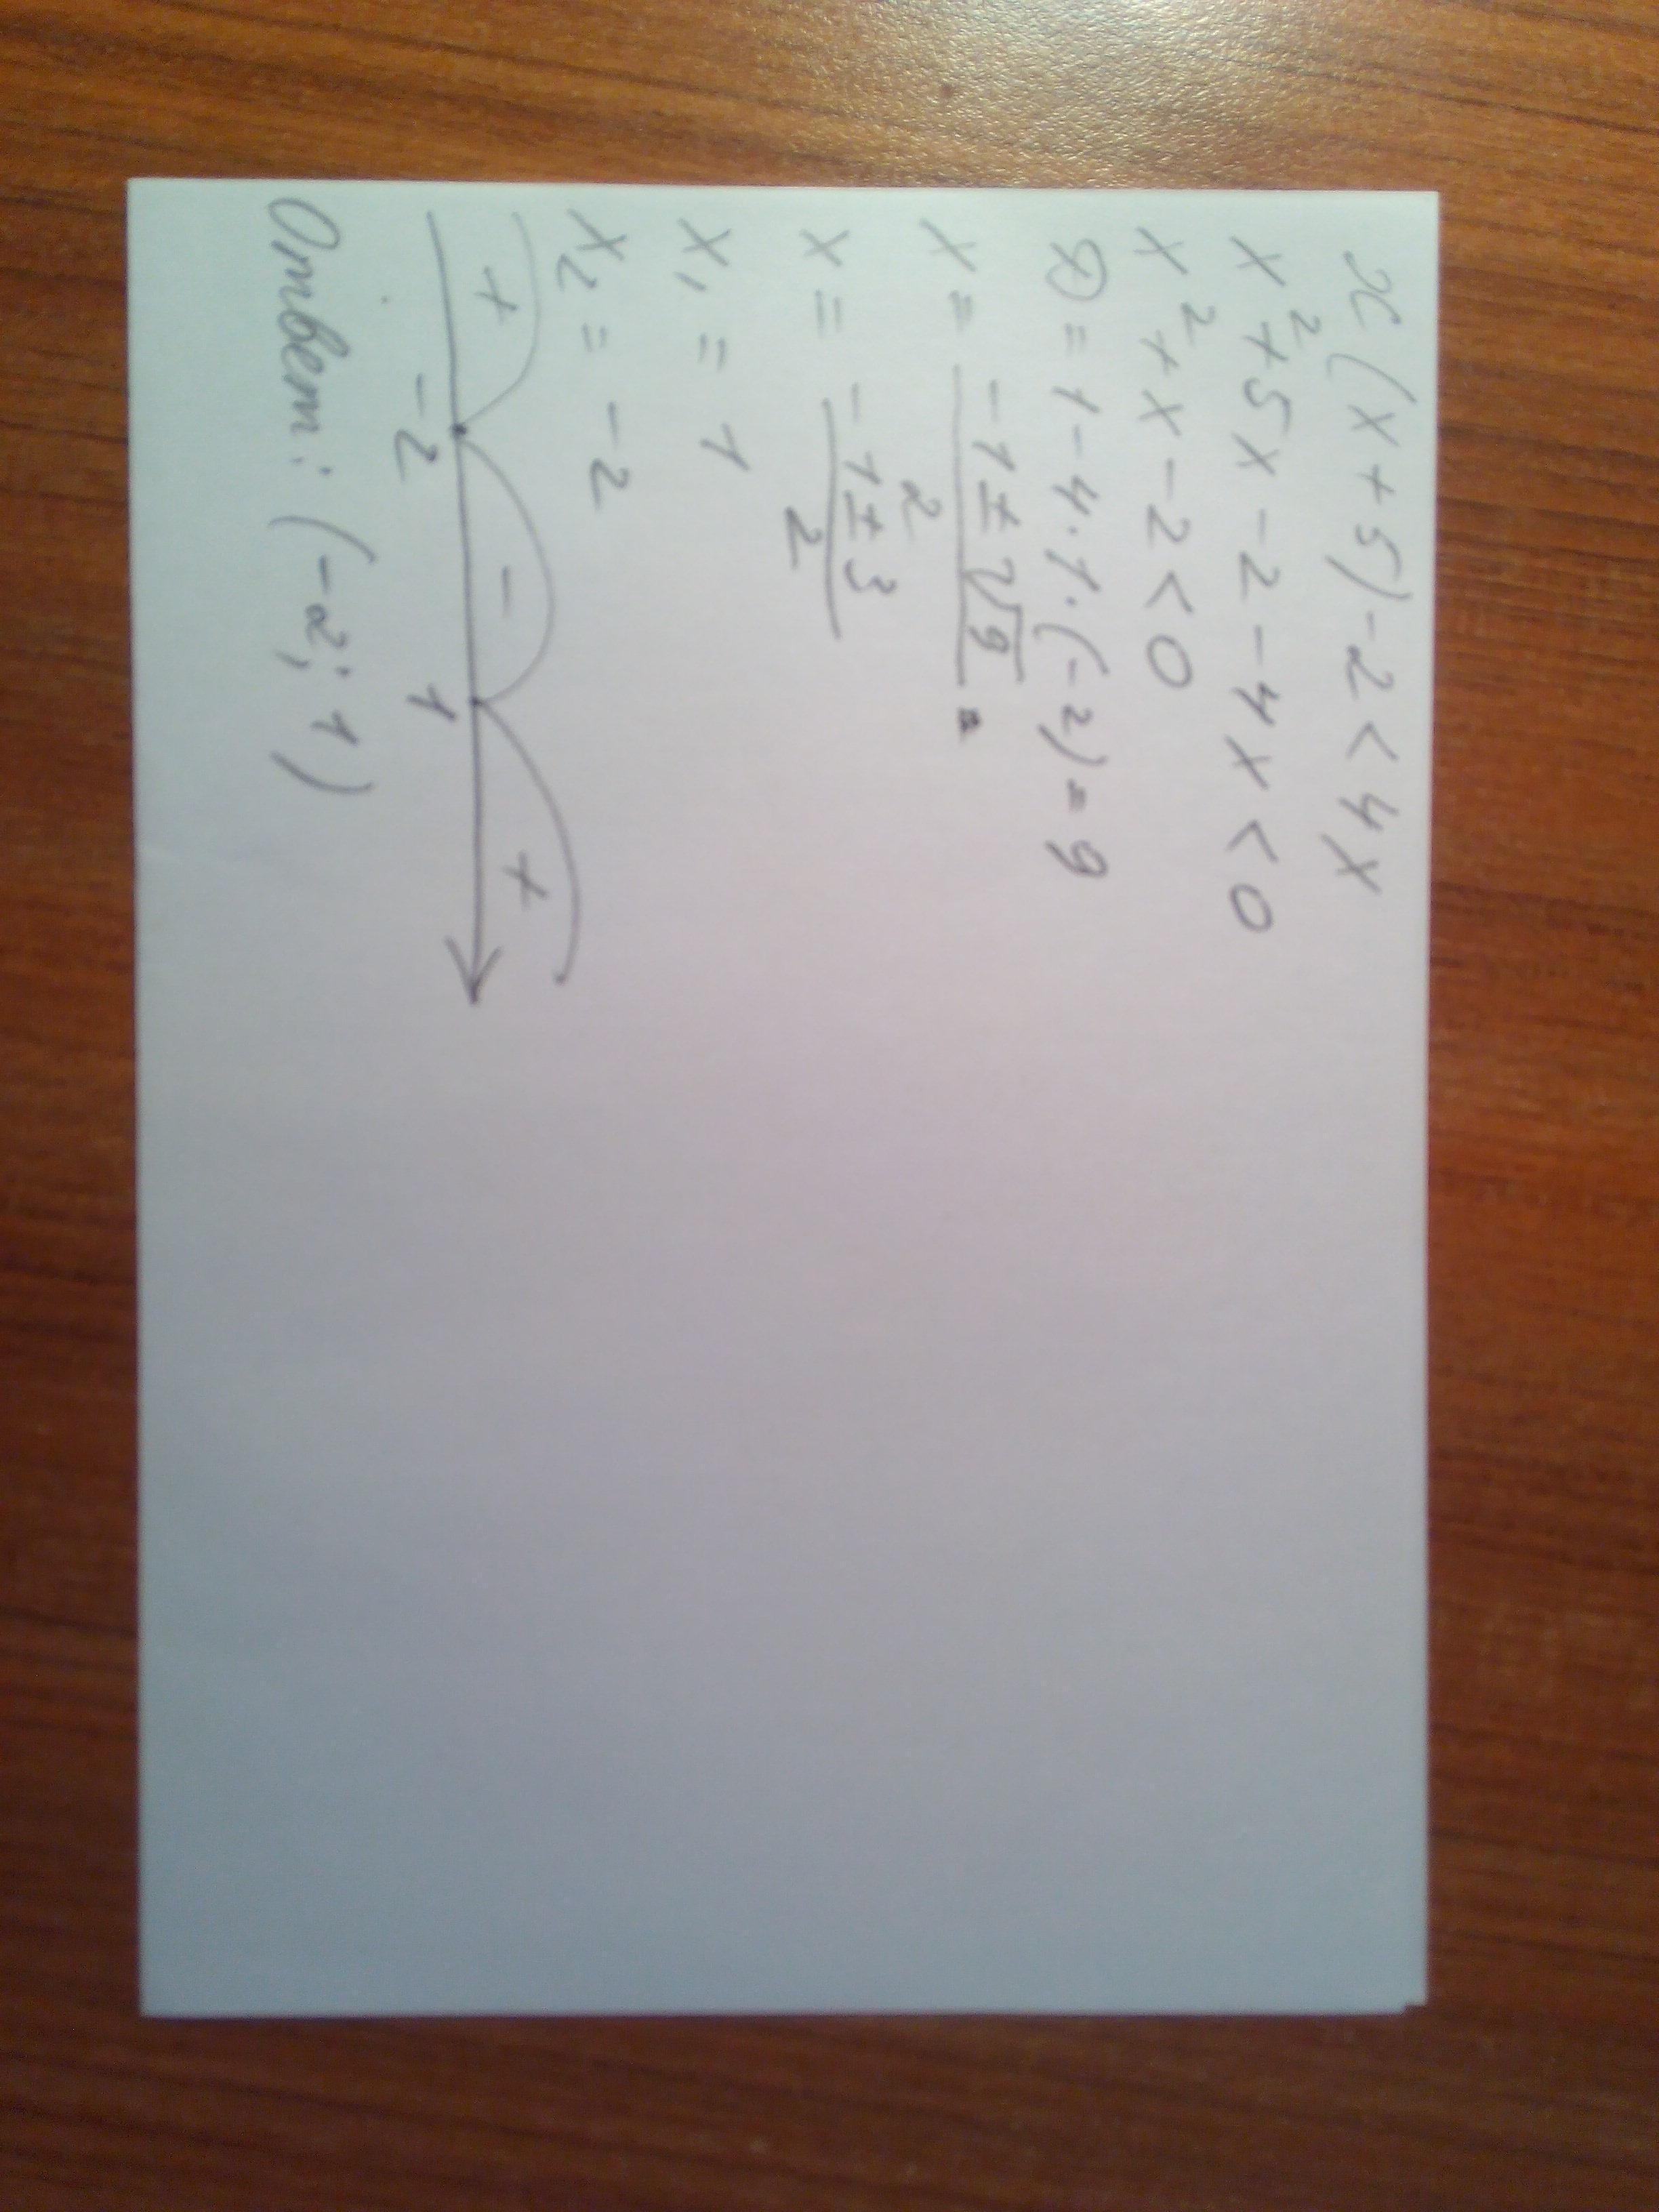 x(x+5)-2<4x
x²+5x-2-4x<0
x²+x-2<0
D=1-4·1·(-2)=9
x = (-1±√9)/2 =
x = (-1±3)/2
x₁ = 1
x₂ = -2
+ - +
-2 1
Ответ: (-2; 1)